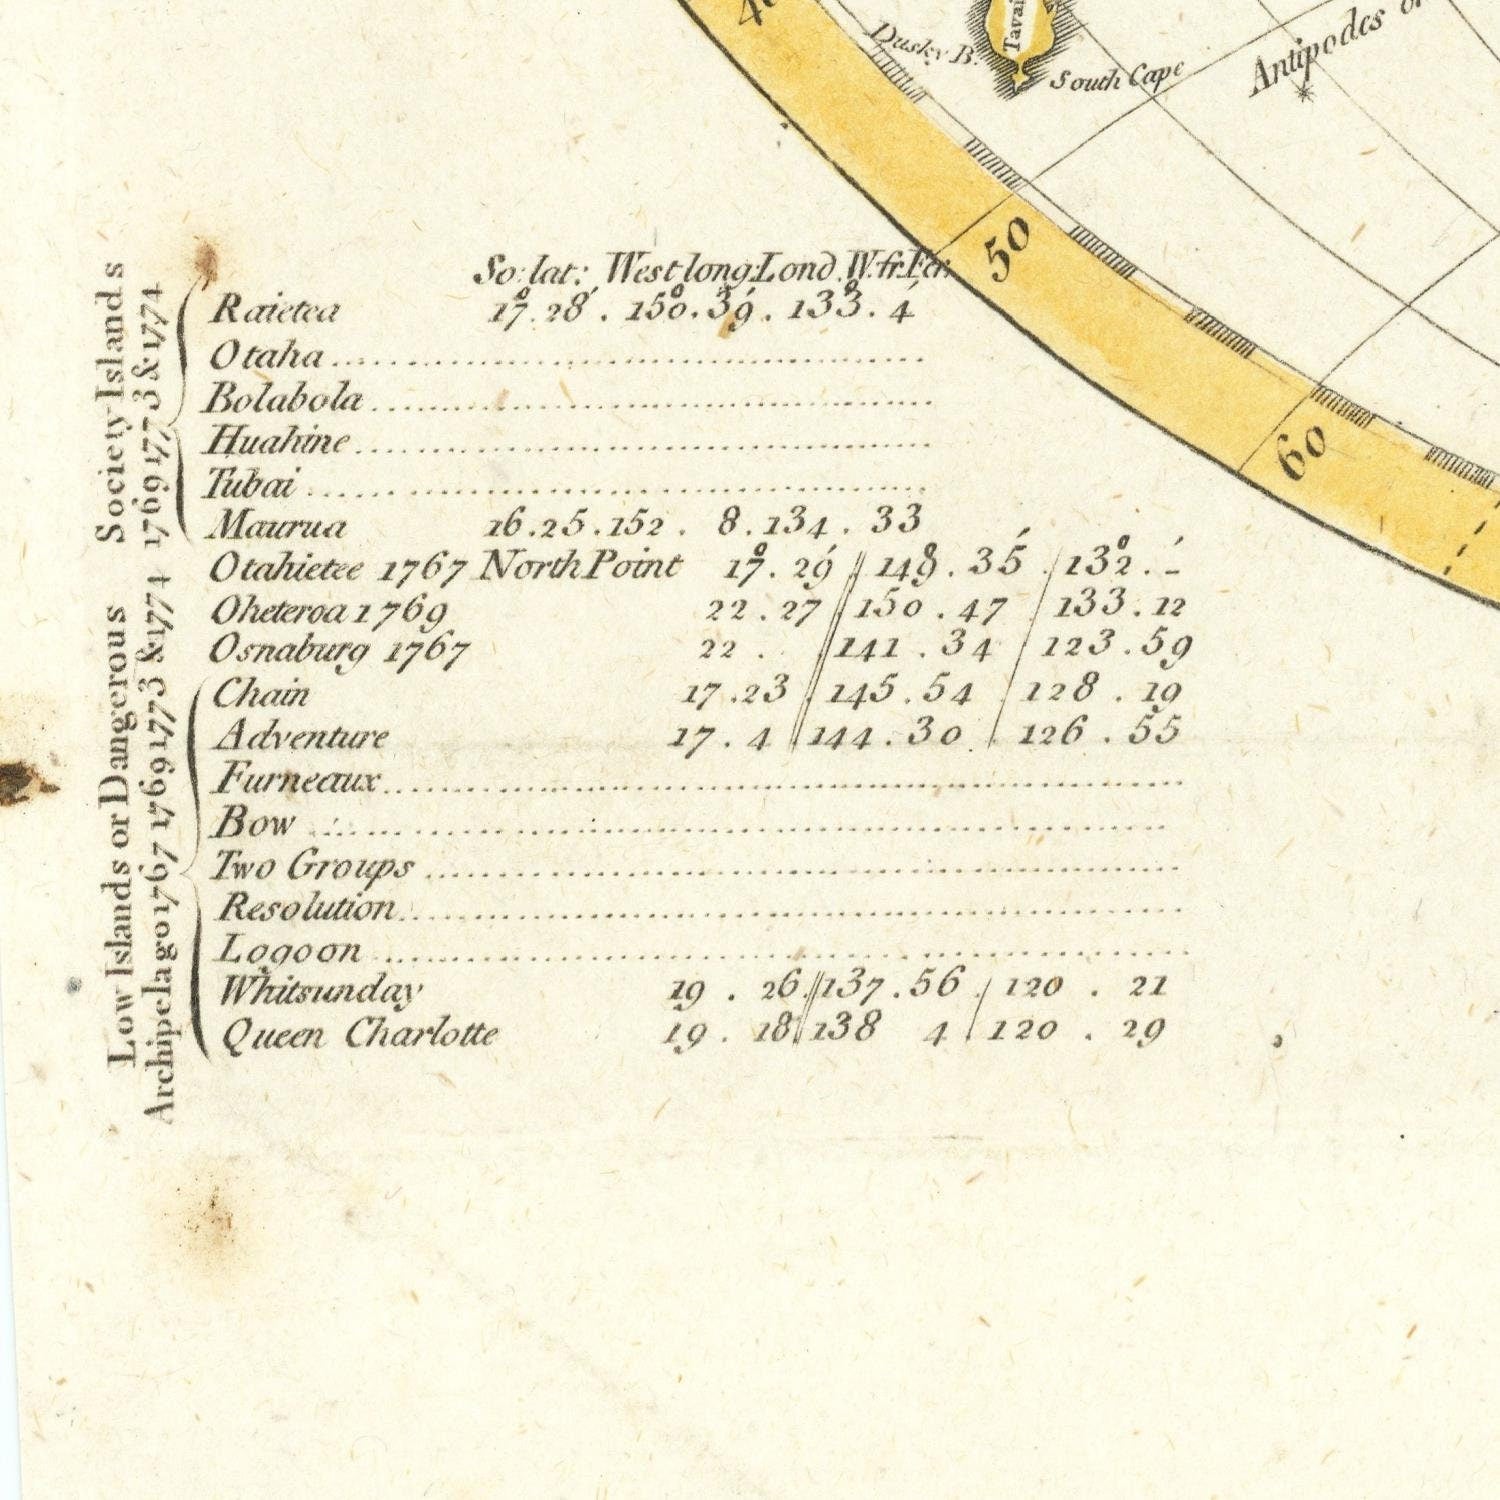 40
Dusky B.
Tavai
South Cape
Antipodes of
50
60
So: lat: West long: Lond W. fr. Fer.
Society Islands
1769 1773 & 1774
Raietea 17°. 28′. 150°. 39′. 133°. 4′
Otaha
Bolabola
Huahine
Tubai
Maurua 16. 25. 152. 8. 134. 33
Otahietee 1767 North Point 17°. 29′ 149°. 35′ 132°. -′
Oheteroa 1769 22. 27 150. 47 133. 12
Osnaburg 1767 22. 141. 34 123. 59
Low Islands or Dangerous
Archipelago 1767 1769 1773 & 1774
Chain 17. 23 145. 54 128. 19
Adventure 17. 4 144. 30 126. 55
Furneaux
Bow
Two Groups
Resolution
Logoon
Whitsunday 19. 26 137. 56 120. 21
Queen Charlotte 19. 18 138 4 120. 29